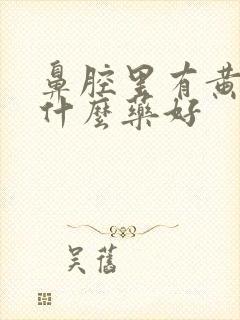 鼻腔里有黄
什麼藥好
吴舊